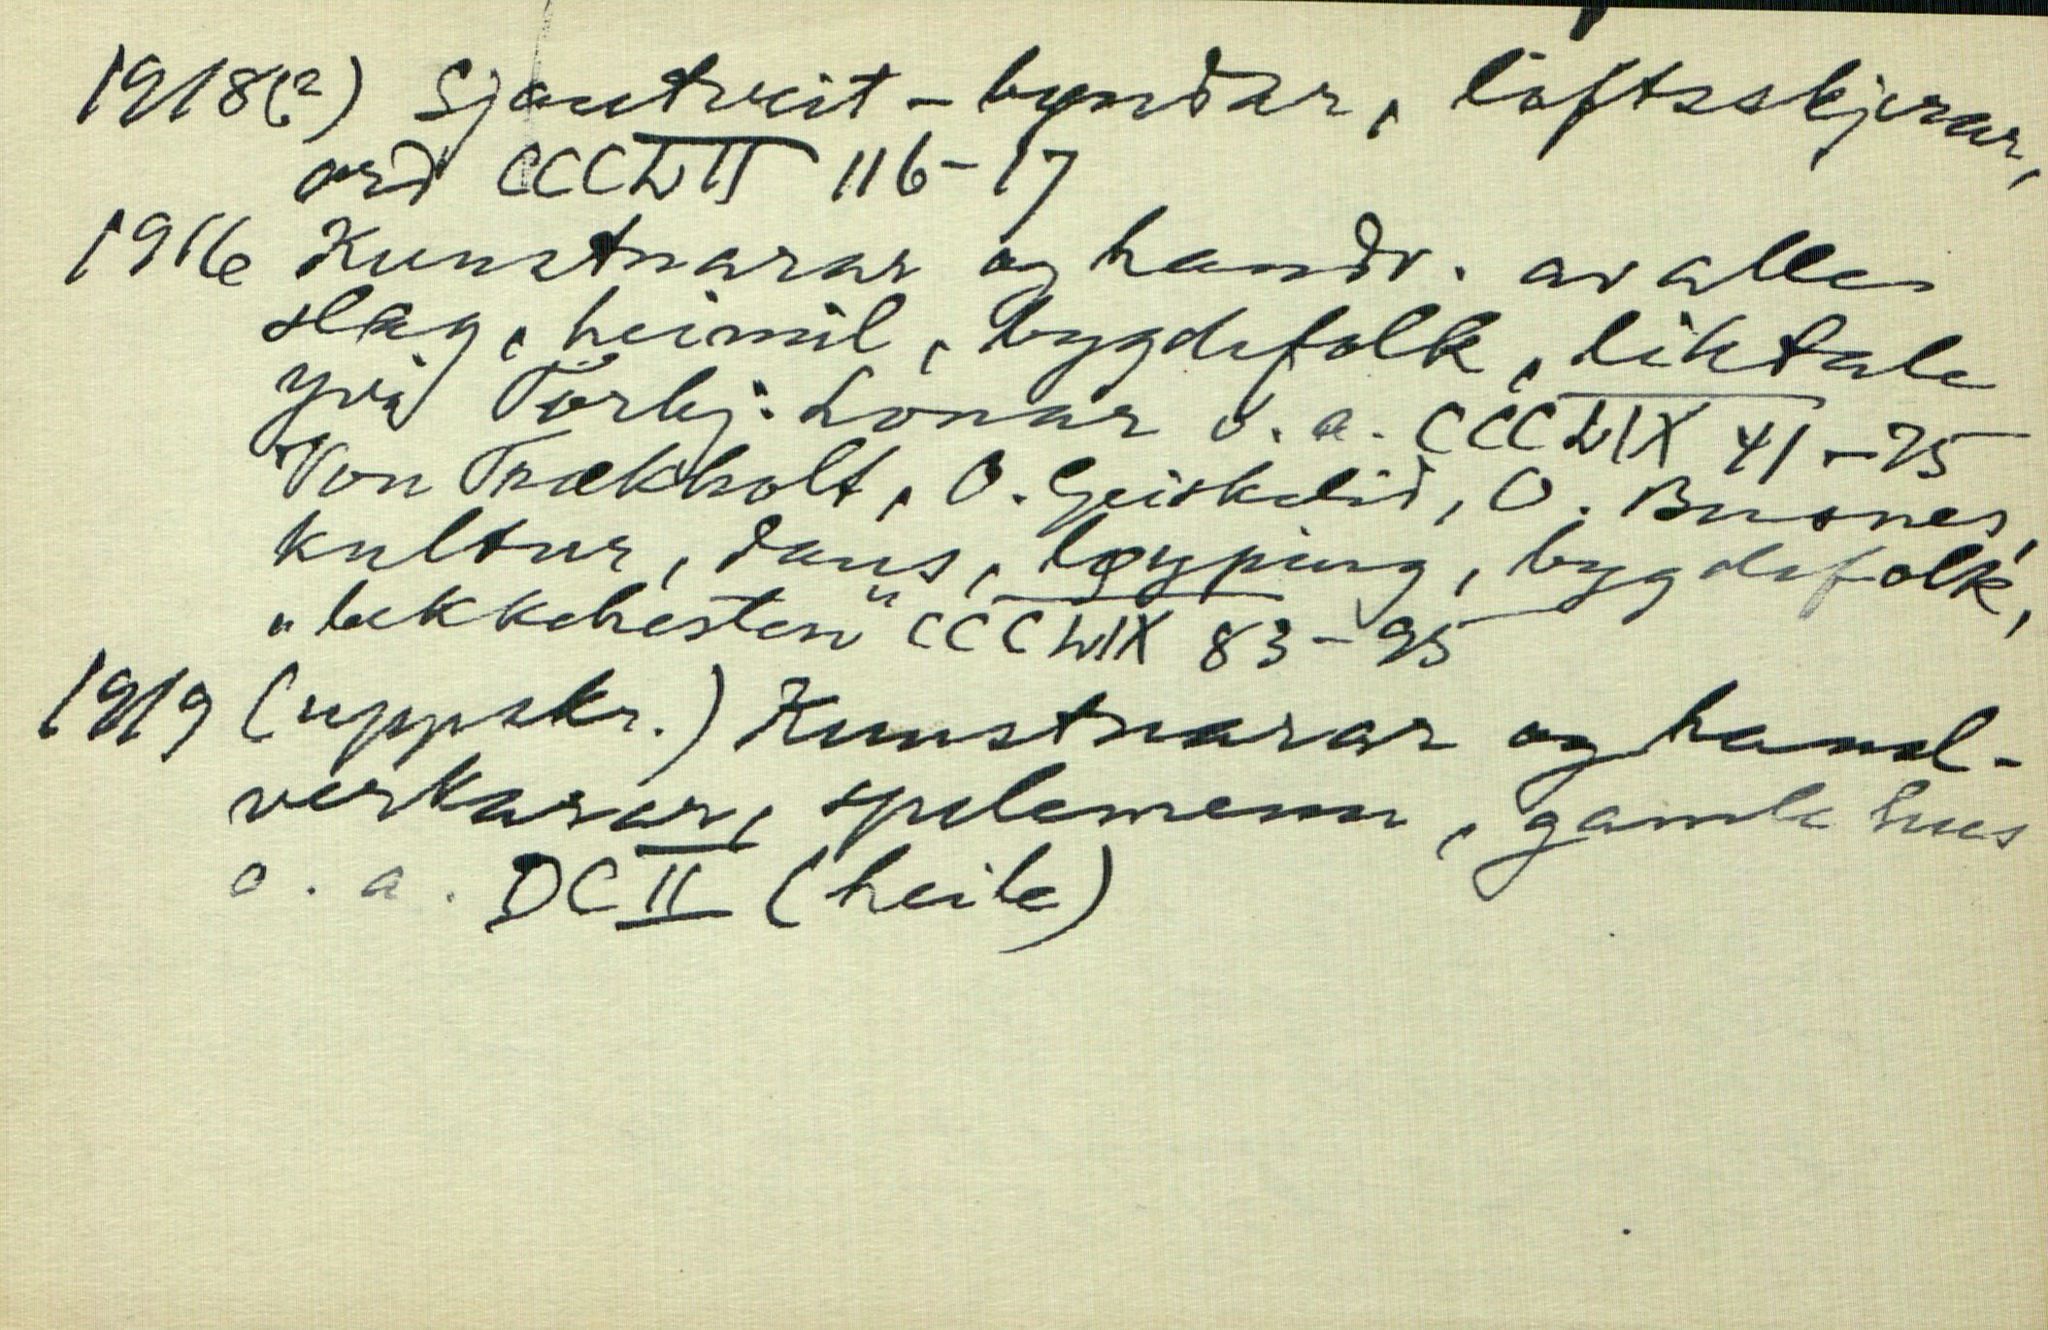 1918(?) Sjautveit-byndar, loftsskjerar,
ord CCCLVII 116-17
1916 Kunstnarar og handv. av alle
slag, heimil, bygdefolk, liktale
yvi Torbj. Lonar o.a. CCCLVIX 41-75
Von Trækholt, O. Geiskelid, O. Busnes,
kultur, dans, løyping, bygdefolk,
"bekkehesten" CCCLVIX 83-95
1919 (uppskr.) Kunstnarar og hand-
verkarar, spelemenn, gamle hus
o.a. DCII (heile)